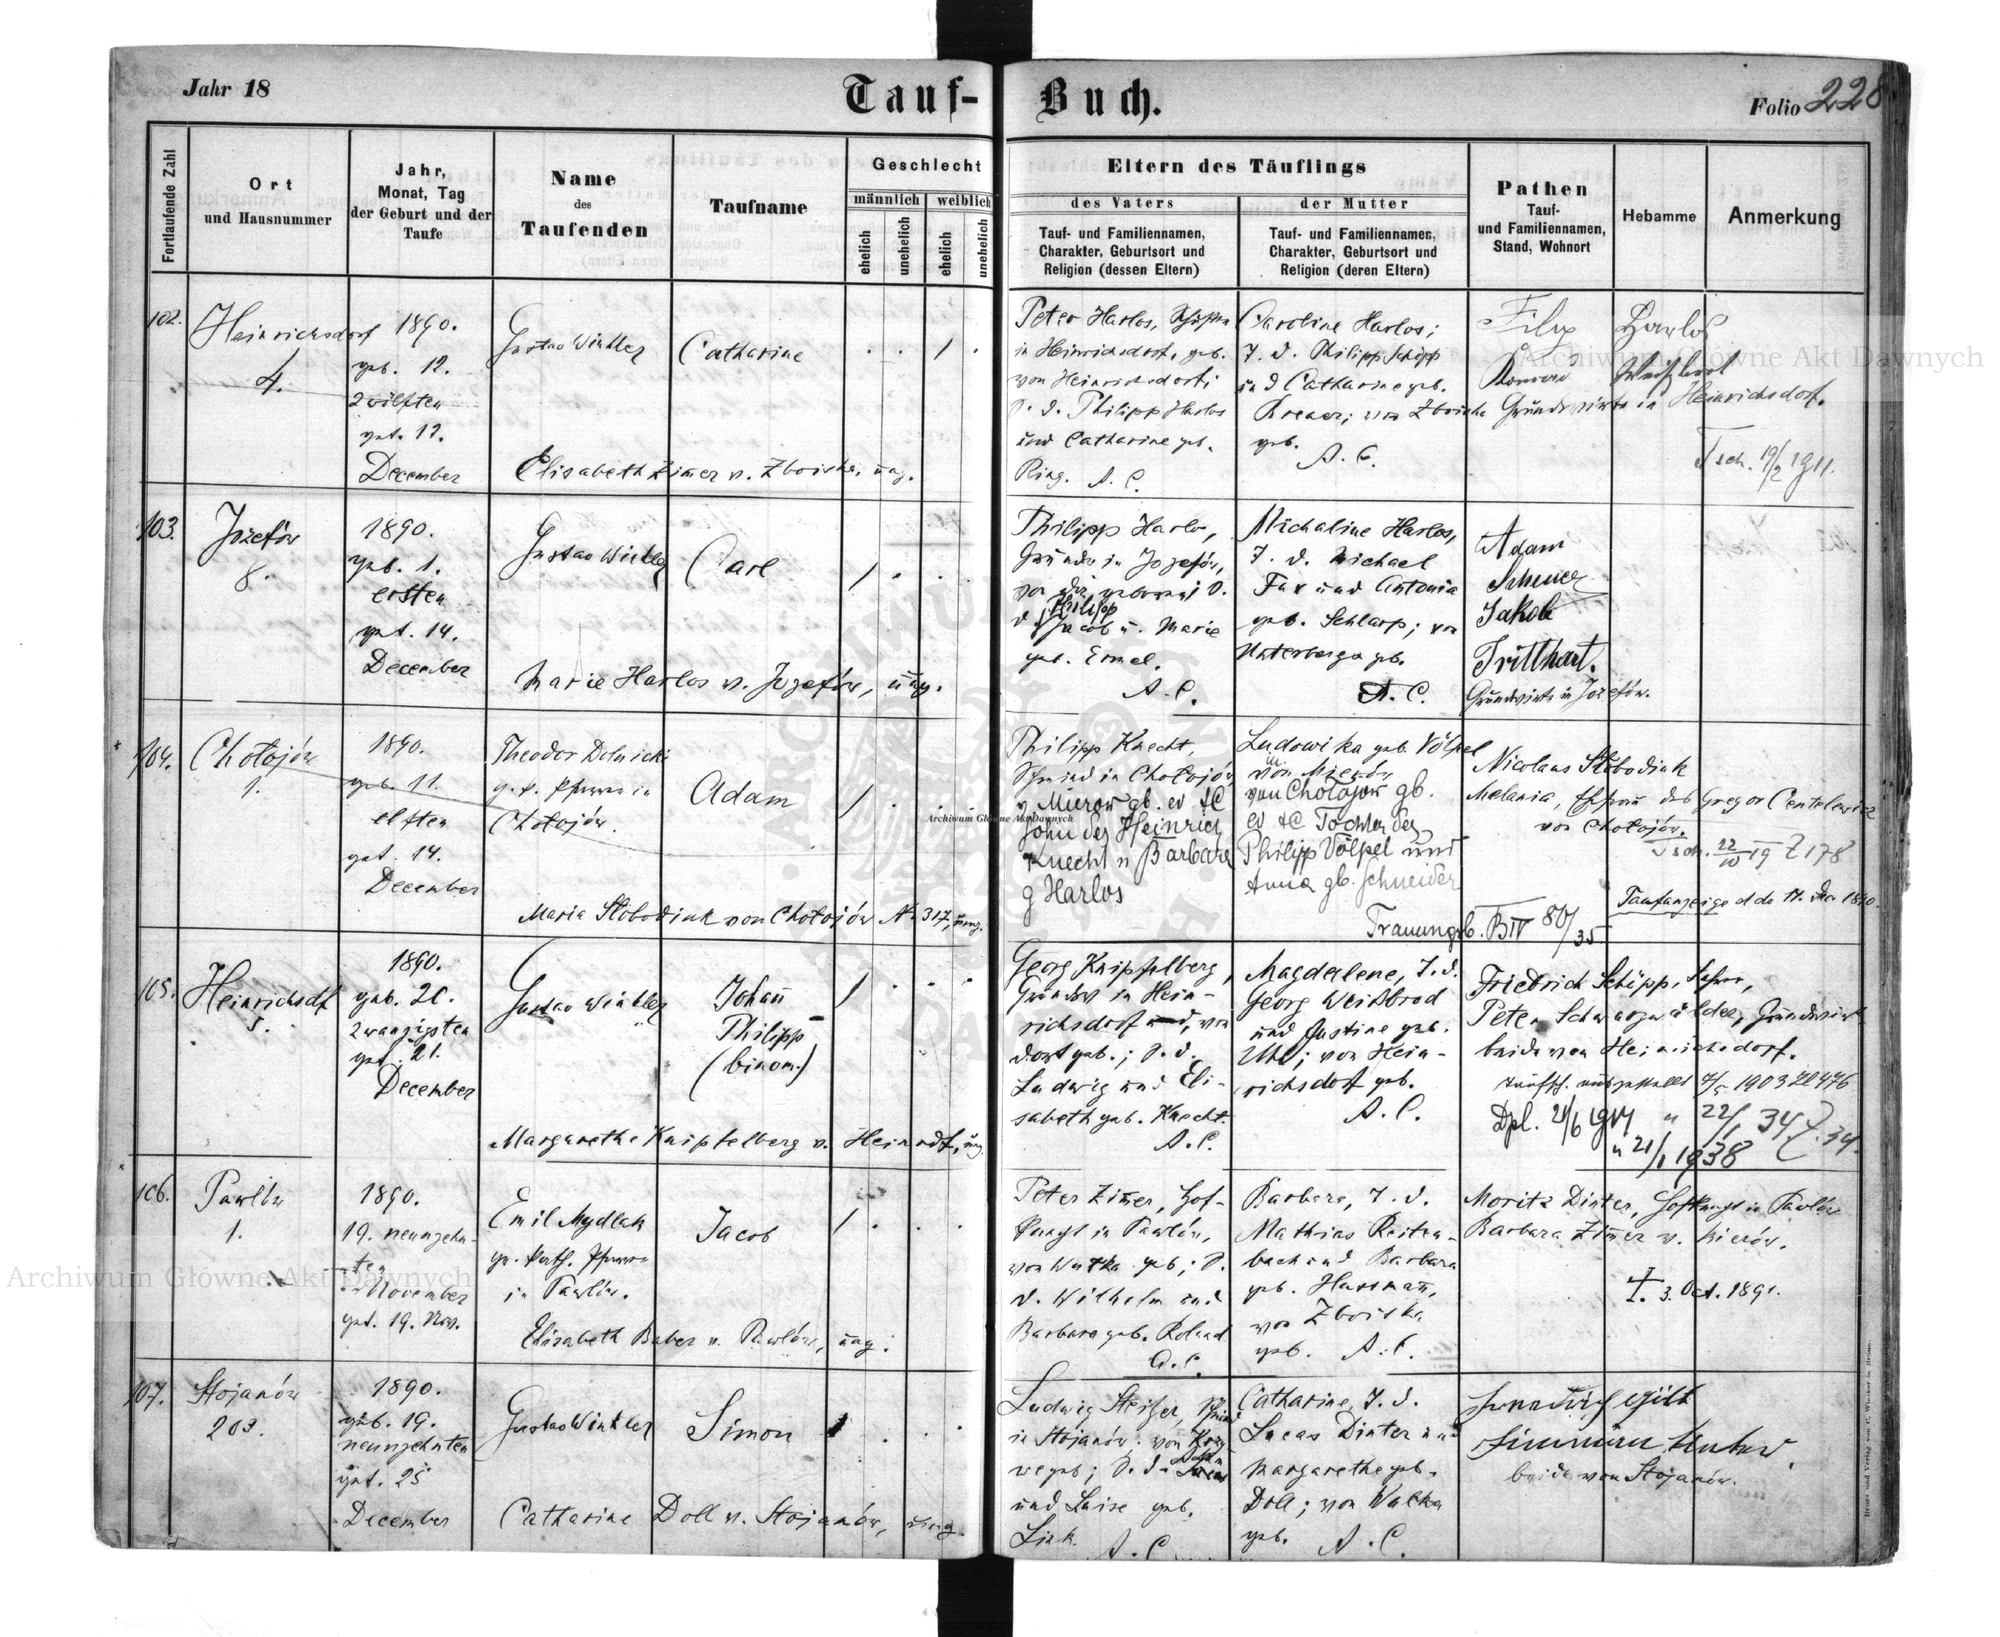 Jahr 18
Tauf-Buch.
Folio 228
Fortlaufende Zahl
Ort
und Hausnummer
Jahr,
Monat, Tag
der Geburt und der
Taufe
Name
des
Taufenden
Taufname
Geschlecht
männlich
weiblich
ehelich
unehelich
ehelich
unehelich
Eltern des Täuflings
des Vaters
der Mutter
Tauf- und Familiennamen,
Charakter, Geburtsort und
Religion (dessen Eltern)
Tauf- und Familiennamen,
Charakter, Geburtsort und
Religion (deren Eltern)
Pathen
Tauf-
und Familiennamen,
Stand, Wohnort
Hebamme
Anmerkung
102.
Heinrichsdorf
4.
1890.
geb. 12.
zwölften
get. 17.
December
Gustav Winkler
Catharine
Elisabeth Zim̄er v. Zboiska, ung.
Peter Harlos,
in Heinrichsdorf, geb.
von Heinrichsdorf;
S. d. Philipp Harlos
und Catharine geb.
Ring. A. C.
Caroline Harlos;
T. d. Philipp Schipp
und Catharine geb.
Kremer; von Zboiska
geb.
A. C.
Filip Harlos
Konrad Weißbrot
Grundwirte in Heinrichsdorf.
Tsch. 19/2 1911.
103.
Józefów
8.
1890.
geb. 1.
ersten
get. 14.
December
Gustav Winkler
Carl
Marie Harlos v. Jozefów, ung.
Philipp Harlos,
Grundw. in Jozefów,
von da geboren; S.
d. Philipp
Jacob u. Marie
geb. Emel.
A. C.
Michaline Harlos,
T. d. Michael
Fux und Antonia
geb. Schlarp; von
Unterbergen geb.
A. C.
Adam
Scheuer
Jakob
Tritthart.
Grundwirte in Jozefów.
104.
Chołojów
1.
1890.
geb. 11.
elften
get. 14.
December
Theodor Dolnicki
g. k. Pfarrer in
Chołojów.
Adam
Maria Słobodiuk von Chołojów No 317, ung.
Philipp Knecht,
Schmied in Chołojów
v. Mierów gb. ev AC
Sohn des Heinrich
Knecht u Barbara
g Harlos
Ludowika geb. Völpel
von Mierów
von Chołojów gb.
ev AC Tochter des
Philipp Völpel und
Anna gb. Schneider
Nicolaus Słobodiuk
Melania, Ehefrau des Gregor Centelewicz
von Chołojów.
Tsch. 22/10 19 Z 178
Taufanzeige d do 17. Dec 1890.
Trauungsb. B IV 80/35
105.
Heinrichsdf
5.
1890.
geb. 20.
zwanzigsten
get. 21.
December
Gustav Winkler
Johan̄
Philipp
(binom.)
Margarethe Knipfelberg v. Heinrdf, ung.
Georg Knipfelberg,
Grundw in Hein-
richsdorf und, von
dort geb.; S. d.
Ludwig und Eli-
sabeth geb. Knecht.
A. C.
Magdalene, T. d.
Georg Weißbrod
und Justine geb.
Uhl; von Hein-
richsdorf geb.
A. C.
Friedrich Schipp,
Peter Schwarzwälder, Grundwirt
beide von Heinrichsdorf.
Taufsch. ausgestellt 7/5 1903 Zl 476
Dpl. 21/6 1914 " 22/1 34 Z. 34.
u 21/1 1938
106.
Pawłów
1.
1890.
19. neunzehn-
ten
November
get. 19. Nov.
Emil Mydlak
gr. kath. Pfarrer
in Pawłów.
Jacob
Elisabeth Baber v. Pawłów, ung.
Peter Zim̄er, Hof-
knegt in Pawlów,
von Wulka geb; S.
d. Wilhelm und
Barbara geb. Roland
A. C.
Barbara, T. d.
Mathias Reiten-
bach und Barbara
geb. Hassman̄,
von Zboiska
geb. A. C.
Moritz Dinter, Hofknegt in Pawlów
Barbara Zim̄er v. Mierów.
†. 3. Oct. 1891.
107.
Stojanów
203.
1890.
geb. 19.
neunzehnten
get. 25
December
Gustav Winkler
Simon
Catharine Doll v. Stojanów, ung.
Ludwig Steifer,
in Stojanów;
we geb; S. d.
und Luise geb.
Link. A. C.
Catharine, T. d.
Lucas Dinter und
Margarethe geb.
Doll; von Wulka
geb. A. C.
beide von Stojanów.
Druck und Verlag von C. Winiker in Brünn.
Archiwum Główne Akt Dawnych
Archiwum Główne Akt Dawnych
Archiwum Główne Akt Dawnych